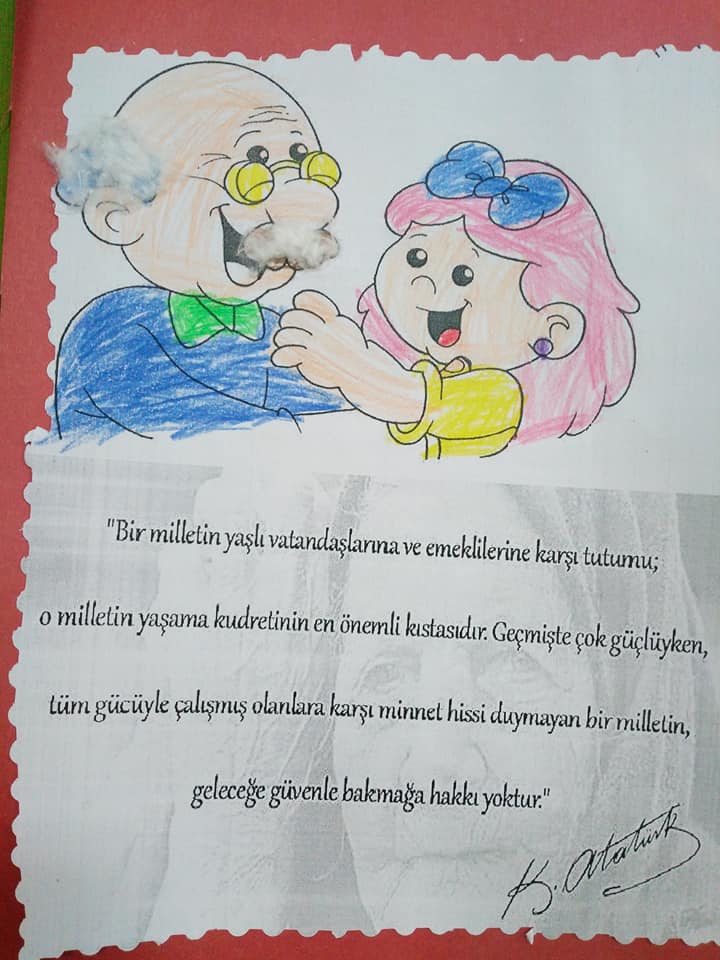 "Bir milletin yaşlı vatandaşlarına ve emeklilerine karşı tutumu;
o milletin yaşama kudretinin en önemli kıstasıdır. Geçmişte çok güçlüyken,
tüm gücüyle çalışmış olanlara karşı minnet hissi duymayan bir milletin,
geleceğe güvenle bakmağa hakkı yoktur."
K. Atatürk